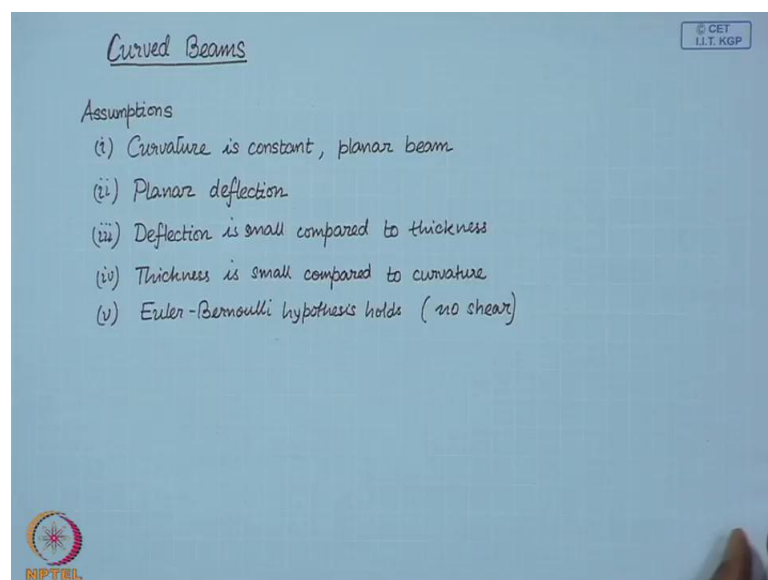 Curved Beams
© CET
I.I.T. KGP
Assumptions
(i) Curvature is constant, planar beam
(ii) Planar deflection
(iii) Deflection is small compared to thickness
(iv) Thickness is small compared to curvature
(v) Euler-Bernoulli hypothesis holds (no shear)
NPTEL